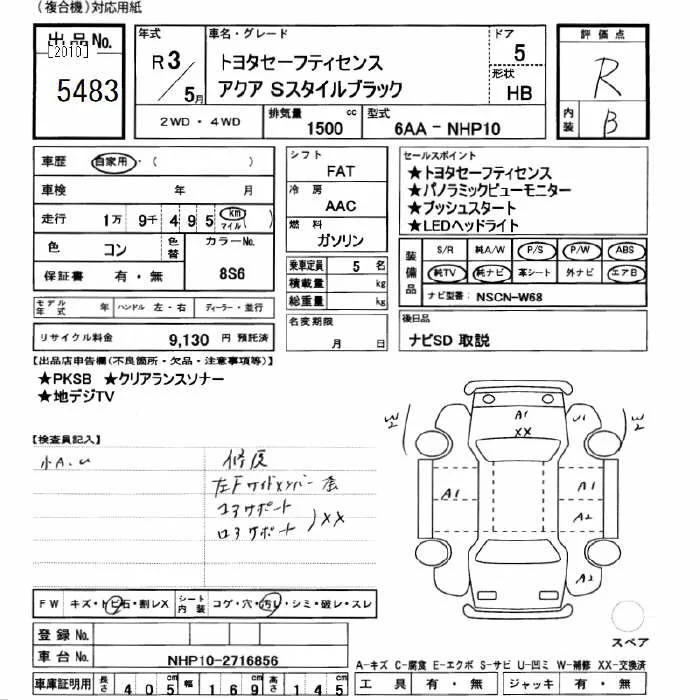 (複合機)対応用紙
出品No.
[2010]
5483
年式
R3/5月
車名・グレード
トヨタセーフティセンス
アクア Sスタイルブラック
ドア
5
形状
HB
2WD・4WD
排気量 1500 cc
型式 6AA-NHP10
評価点
R
内装
B
車歴 自家用・( )
車検 年 月
走行 1万 9千 4 9 5 km マイル ( )
色 コン
色替
カラーNo.
8S6
保証書 有・無
モデル年式 年 ハンドル 左・右 ディーラー・並行
リサイクル料金 9,130 円 預託済
シフト
FAT
冷房
AAC
燃料
ガソリン
乗車定員 5 名
積載量 kg
総重量 kg
名変期限
月 日
セールスポイント
★トヨタセーフティセンス
★パノラミックビューモニター
★プッシュスタート
★LEDヘッドライト
装備品
S/R 純A/W P/S P/W ABS
純TV 純ナビ 革シート 外ナビ エアB
ナビ型番: NSCN-W68
後日品
ナビSD 取説
【出品店申告欄(不良箇所・欠品・注意事項等)】
★PKSB ★クリアランスソナー
★地デジTV
【検査員記入】
小A.U
修復
左Fサイドメンバー
コアサポート
ロアサポート
XX
A1
XX
A1
A2
A2
A2
FW キズ・トビ石・割レX
シート内装 コゲ・穴・汚レ・シミ・破レ・スレ
登録No.
車台No. NHP10-2716856
車庫証明用 長さ 405 cm 幅 169 cm 高さ 145 cm
スペア
A-キズ C-腐食 E-エクボ S-サビ U-凹ミ W-補修 XX-交換済
工具 有・無 ジャッキ 有・無